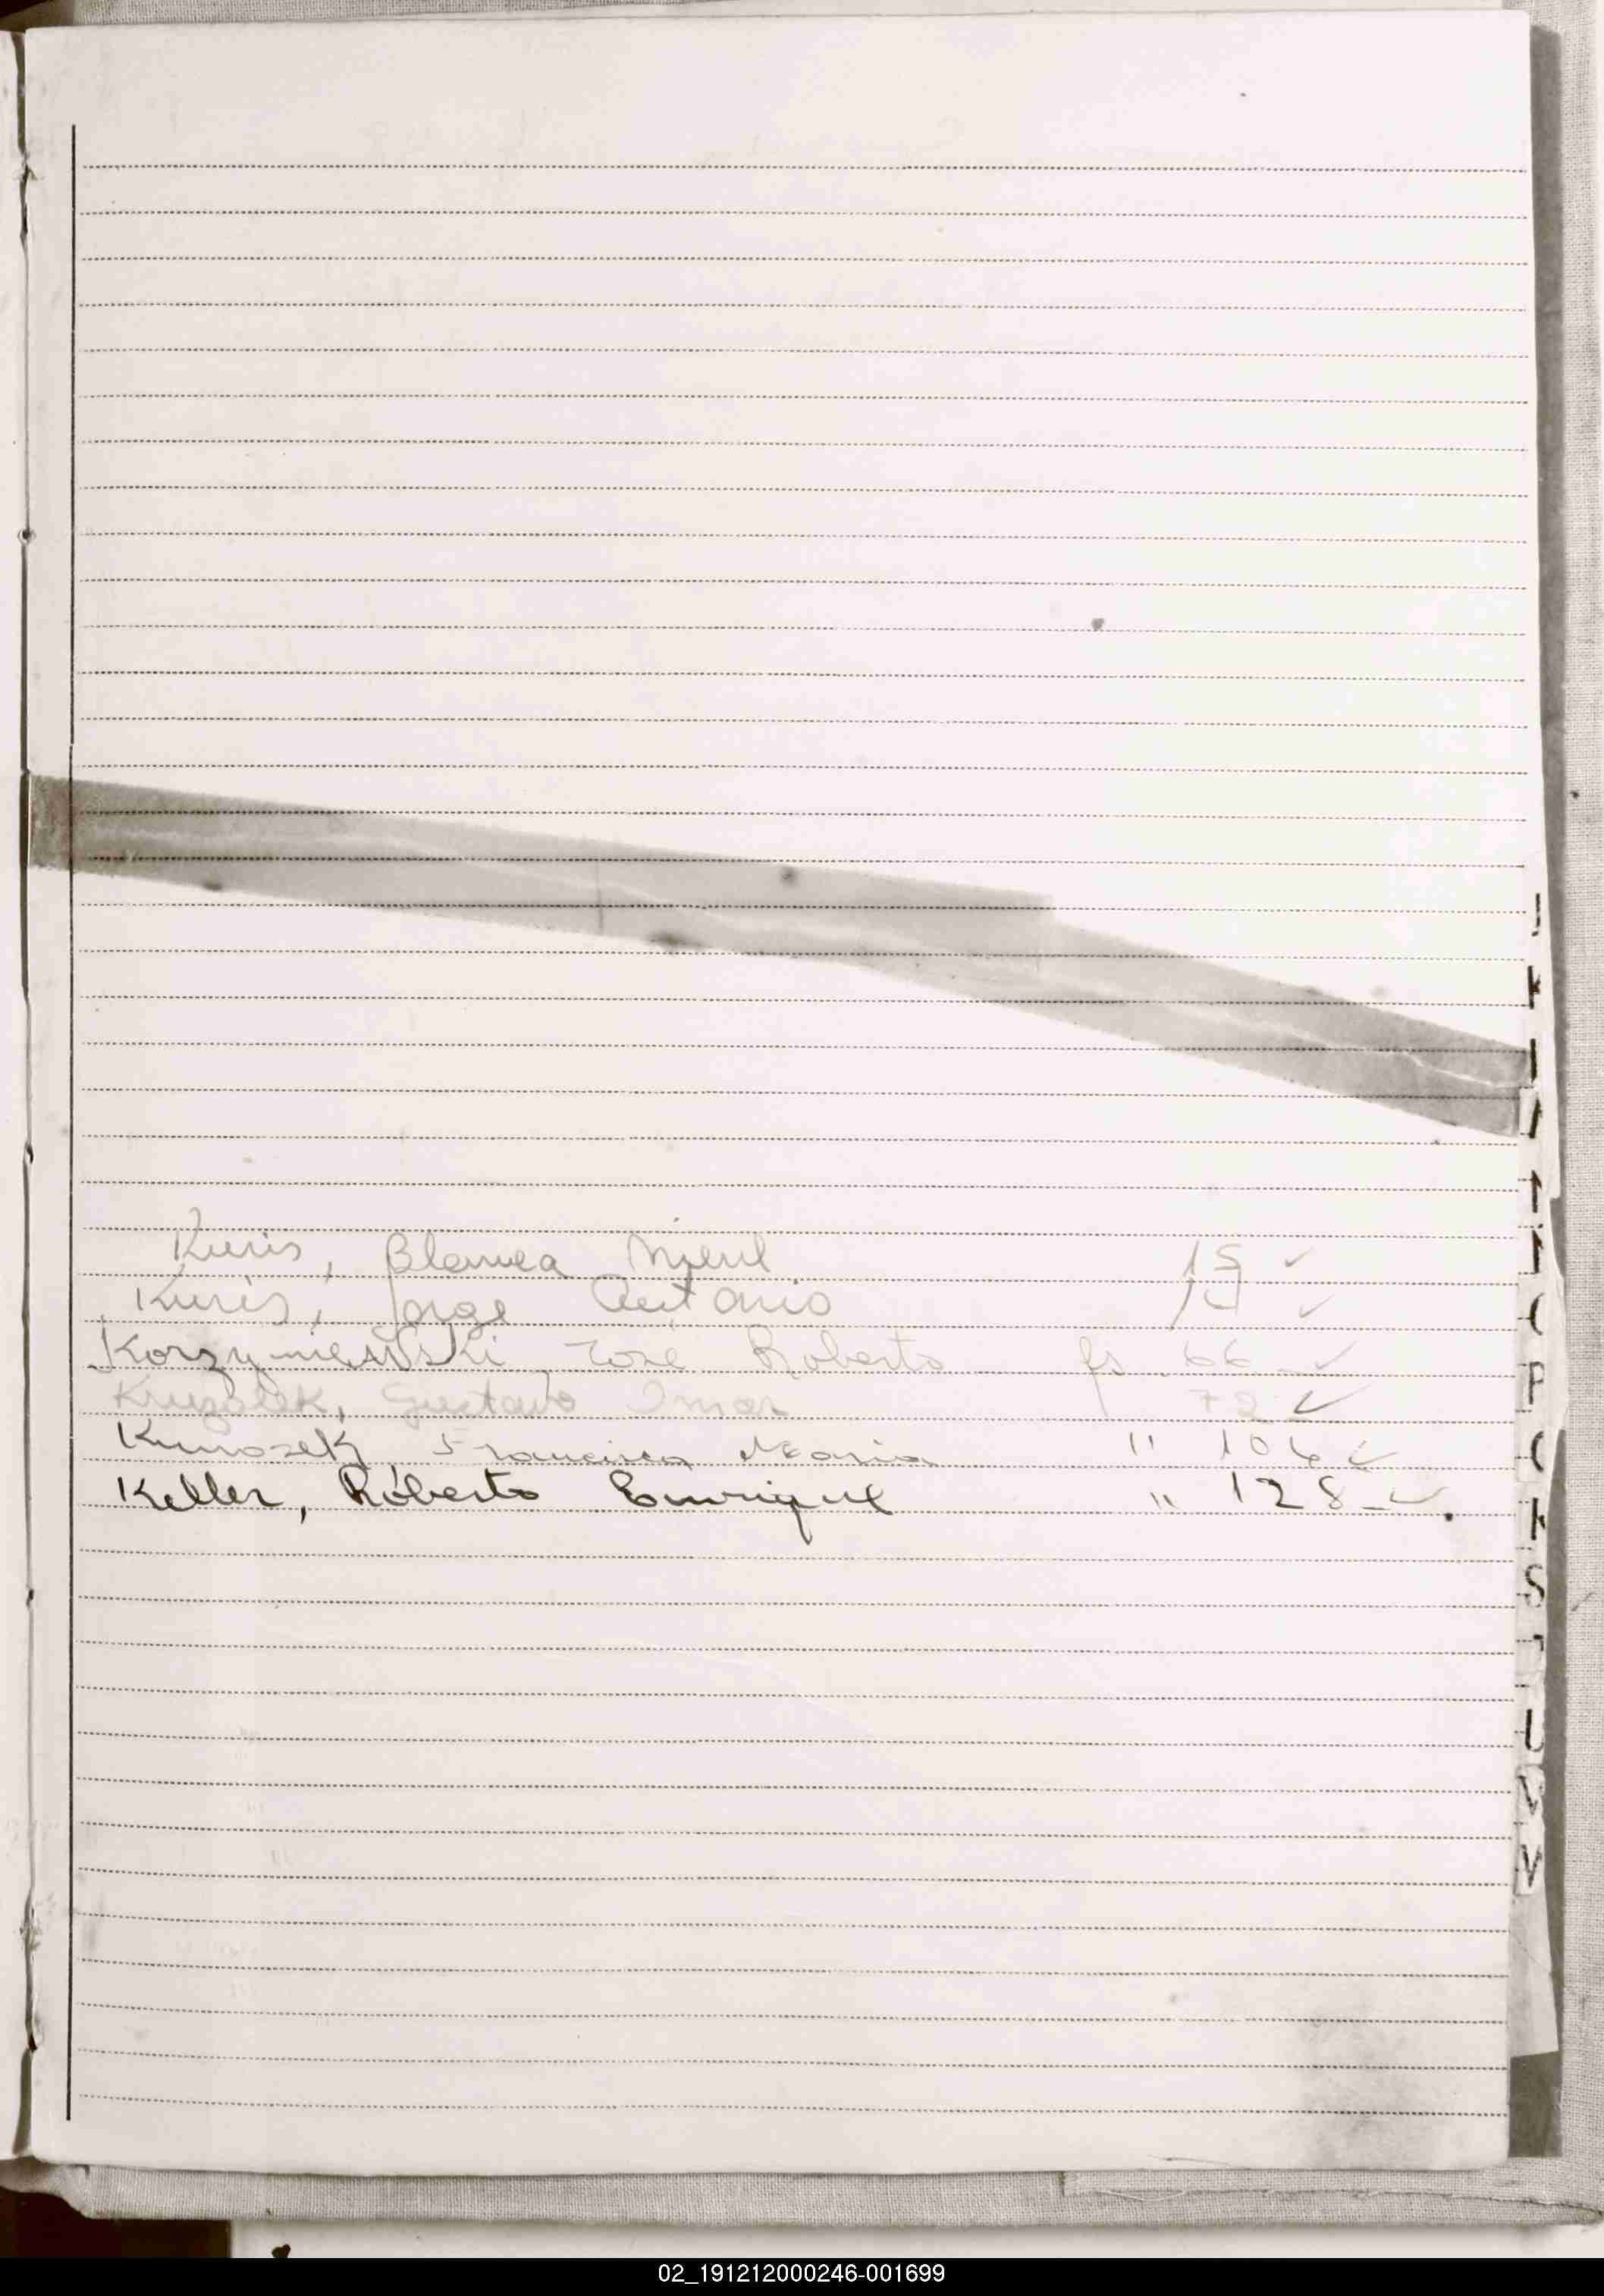 Kuris, Blanca 15 ✓
Kuris, Jorge Antonio 15 ✓
Korzyniewski José Roberto fs. 66 ✓
Gustavo Omar 72 ✓
Francisca Maria " 106 ✓
Keller, Roberto Enrique " 128 - ✓
P
S
U
V
V
02_191212000246-001699